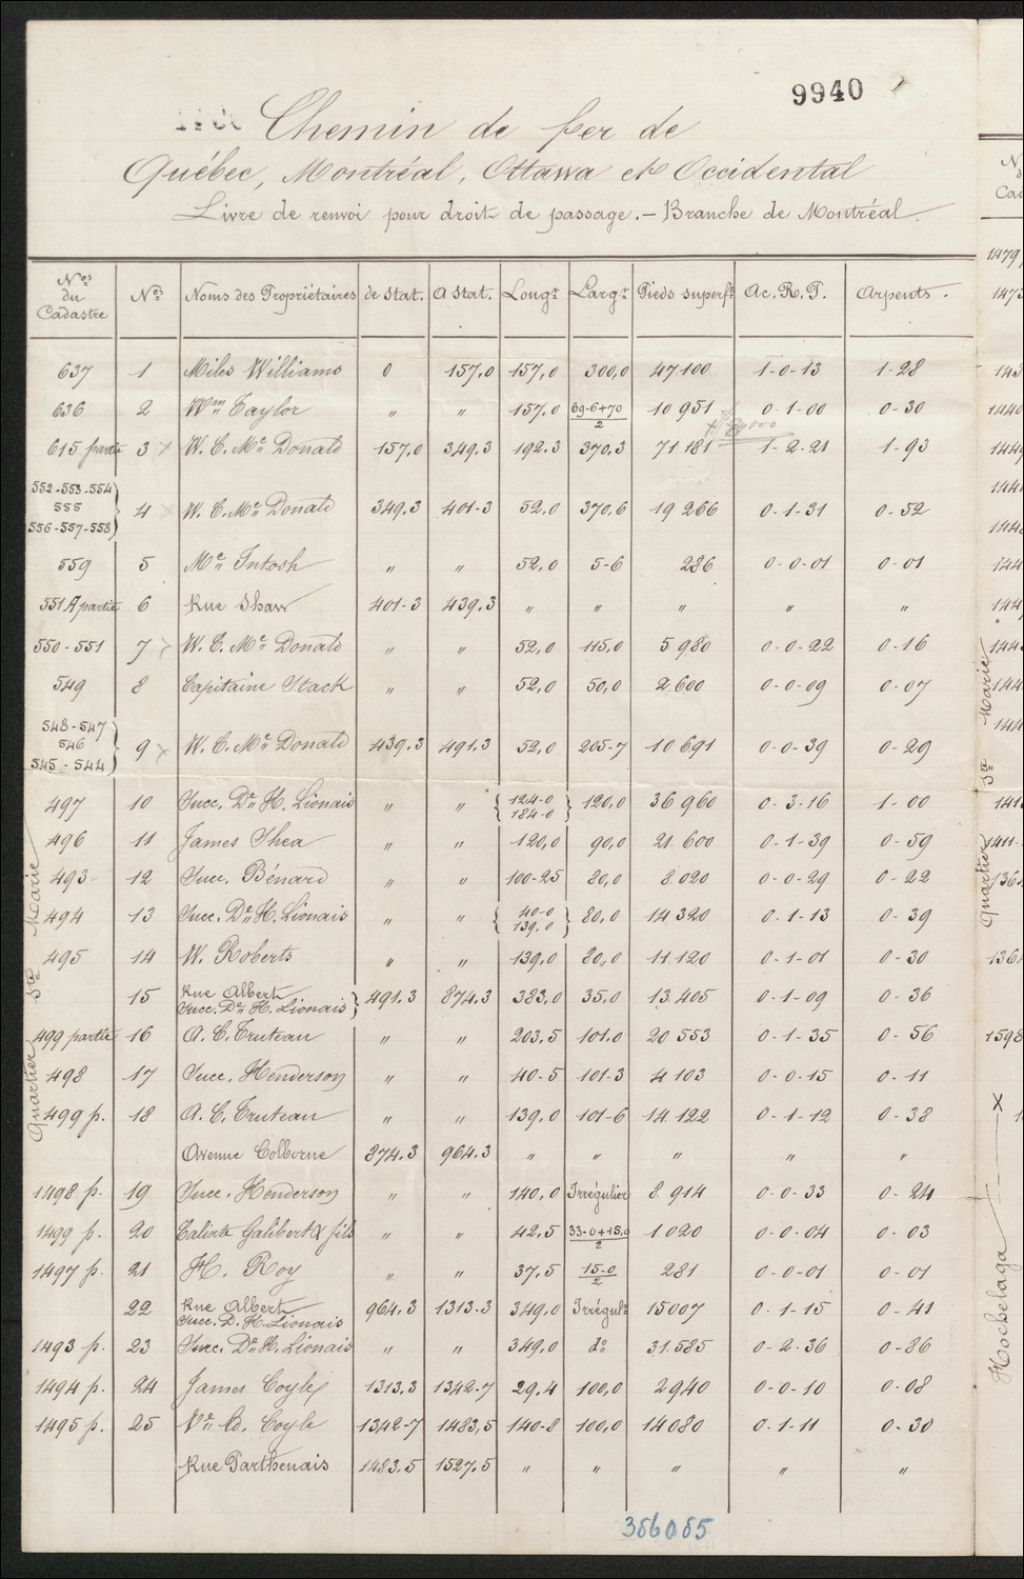 9940
Chemin de fer de
Québec, Montréal, Ottawa et Occidental
Livre de renvoi pour droit de passage. – Branche de Montréal.
Nos du Cadastre | Nos | Noms des Propriétaires | de Stat. | A Stat. | Longr | Largr | Pieds superfs | Ac. R. P. | Arpents.
637 | 1 | Miles Williams | 0 | 157,0 | 157,0 | 300,0 | 47100 | 1-0-13 | 1-28
636 | 2 | Wm Taylor | " | " | 157.0 | 69-6+70/2 | 10951 | 0-1-00 | 0-30
615 partie | 3 x | W. C. Mc Donald | 157.0 | 349.3 | 192.3 | 370.3 | 71181 | 1-2-21 | 1-93
552-553-554 555 556-557-558 } | 4 x | W. C. Mc Donald | 349.3 | 401-3 | 52,0 | 370.6 | 19266 | 0-1-31 | 0-52
559 | 5 | Mc Intosh | " | " | 52,0 | 5-6 | 286 | 0-0-01 | 0-01
551 A partie | 6 | Rue Shaw | 401-3 | 439.3 | " | " | " | " | "
550-551 | 7 x | W. C. Mc Donald | " | " | 52,0 | 115,0 | 5980 | 0-0-22 | 0-16
549 | 8 | Capitaine Stack | " | " | 52,0 | 50,0 | 2600 | 0-0-09 | 0-07
548-547 546 545-544 } | 9 x | W. C. Mc Donald | 439.3 | 491.3 | 52,0 | 205-7 | 10691 | 0-0-39 | 0-29
497 | 10 | Succ. De H. Lionais | " | " | { 124-0 184-0 } | 120,0 | 36960 | 0-3-16 | 1-00
496 | 11 | James Shea | " | " | 120,0 | 90,0 | 21600 | 0-1-39 | 0-59
493 | 12 | Succ. Bénard | " | " | 100-25 | 80,0 | 8020 | 0-0-29 | 0-22
494 | 13 | Succ. De H. Lionais | " | " | { 40-0 139,0 } | 80,0 | 14320 | 0-1-13 | 0-39
495 | 14 | W. Roberts | " | " | 139,0 | 80,0 | 11120 | 0-1-01 | 0-30
15 | Rue Albert Succ. De H. Lionais } | 491.3 | 874.3 | 383,0 | 35,0 | 13.405 | 0-1-09 | 0-36
499 partie | 16 | A. C. Truteau | " | " | 203,5 | 101,0 | 20553 | 0-1-35 | 0-56
498 | 17 | Succ. Henderson | " | " | 40-5 | 101-3 | 4103 | 0-0-15 | 0-11
499 p. | 18 | A. C. Truteau | " | " | 139,0 | 101-6 | 14.122 | 0-1-12 | 0-38
Avenue Colborne | 874.3 | 964.3 | " | " | " | " | "
1498 p. | 19 | Succ. Henderson | " | " | 140,0 | Irrégulier | 8914 | 0-0-33 | 0-24
1499 p. | 20 | Calixte Galibert & fils | " | " | 42,5 | 33-0+15,0/2 | 1020 | 0-0-04 | 0-03
1497 p. | 21 | H. Roy | " | " | 37,5 | 15-0/2 | 281 | 0-0-01 | 0-01
22 | Rue Albert Succ. D. H. Lionais | 964.3 | 1313-3 | 349,0 | Irrégulr | 15007 | 0-1-15 | 0-41
1493 p. | 23 | Succ. De H. Lionais | " | " | 349,0 | do | 31.585 | 0-2-36 | 0-86
1494 p. | 24 | James Coyle | 1313,3 | 1342-7 | 29.4 | 100,0 | 2940 | 0-0-10 | 0-08
1495 p. | 25 | Ve Ed. Coyle | 1342-7 | 1483,5 | 140-8 | 100,0 | 14080 | 0-1-11 | 0-30
Rue Parthenais | 1483.5 | 1527.5 | " | " | " | " | "
356055
Quartier Ste Marie
Quartier Ste Marie
Hochelaga